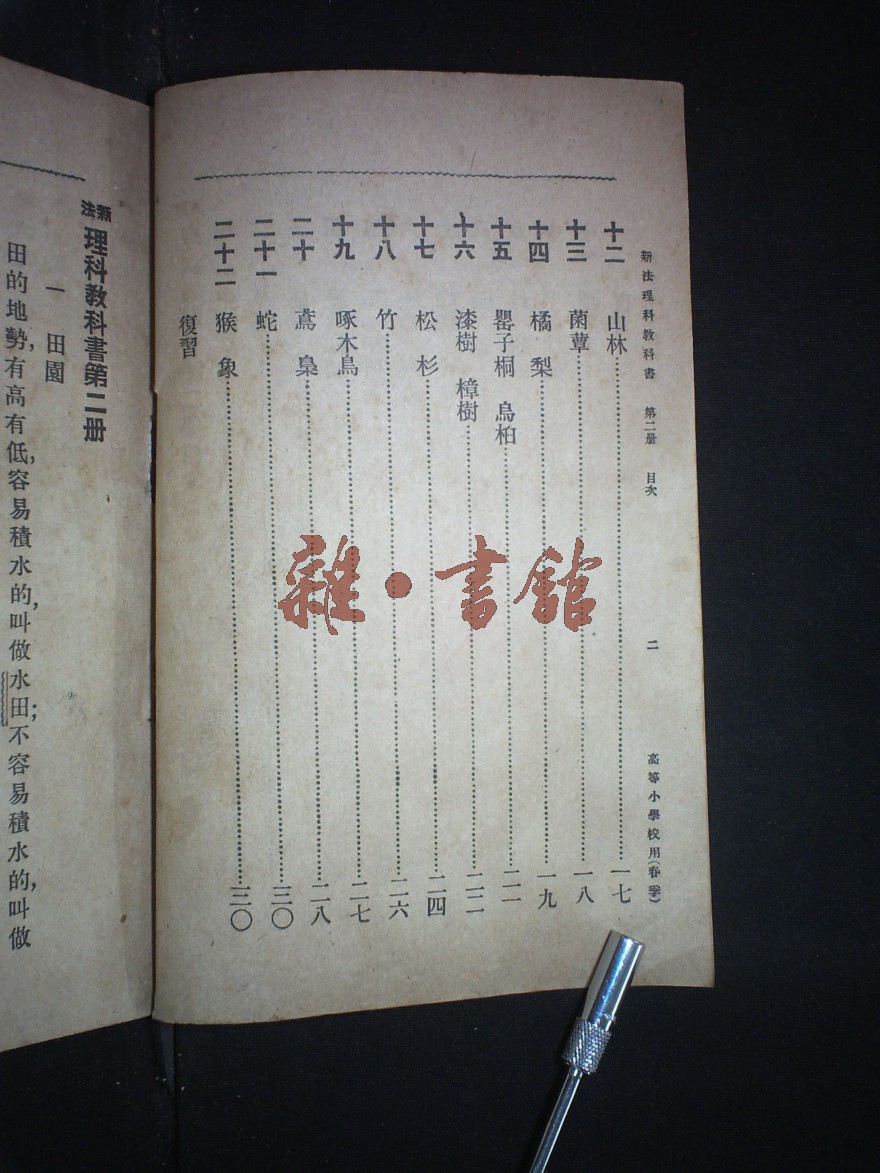 新法理科教科書 第二册 目次 二 高等小學校用(春季)
十二 山林 一七
十三 菌蕈 一八
十四 橘 梨 一九
十五 罌子桐 烏桕 二一
十六 漆樹 樟樹 二二
十七 松 杉 二四
十八 竹 二六
十九 啄木鳥 二七
二十 鳶 梟 二八
二十一 蛇 三〇
二十二 猴 象 三〇
復習
新法理科教科書第二册
一 田園
田的地勢,有高有低,容易積水的,叫做水田;不容易積水的,叫做
雜·書館